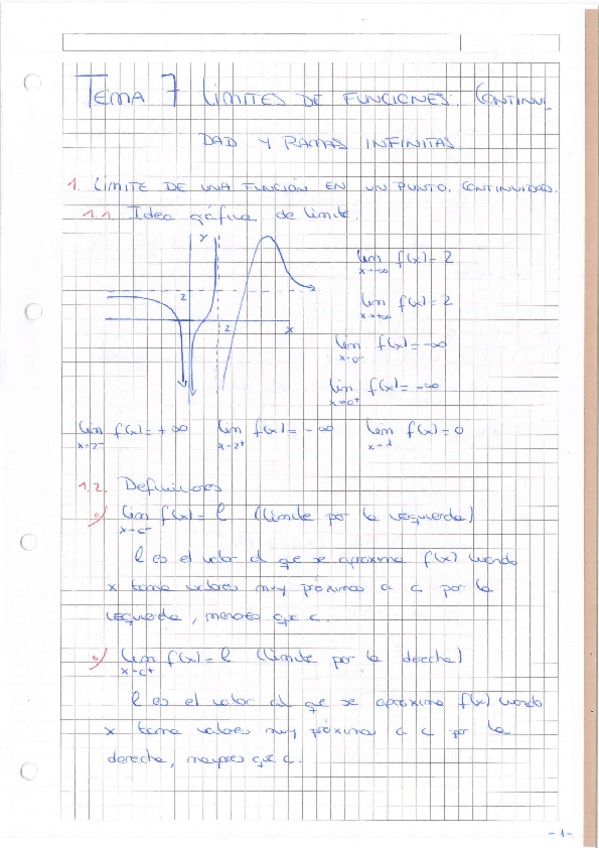 TEMA 7 LÍMITES DE FUNCIONES. CONTINUI
DAD Y RAMAS INFINITAS.
1. LÍMITE DE UNA FUNCIÓN EN UN PUNTO. CONTINUIDAD.
1.1. Idea gráfica de límite.
y
2
2
x
lim f(x) = 2
x→-∞
lim f(x) = 2
x→+∞
lim f(x) = -∞
x→0⁻
lim f(x) = -∞
x→0⁺
lim f(x) = +∞ lim f(x) = -∞ lim f(x) = 0
x→2⁻ x→2⁺ x→1
1.2. Definiciones
lim f(x) = l (límite por la izquierda)
x→c⁻
l es el valor al que se aproxima f(x) cuando
x toma valores muy próximos a c por la
izquierda, menores que c.
lim f(x) = l (límite por la derecha)
x→c⁺
l es el valor al que se aproxima f(x) cuando
x toma valores muy próximos a c por la
derecha, mayores que c.
-1-